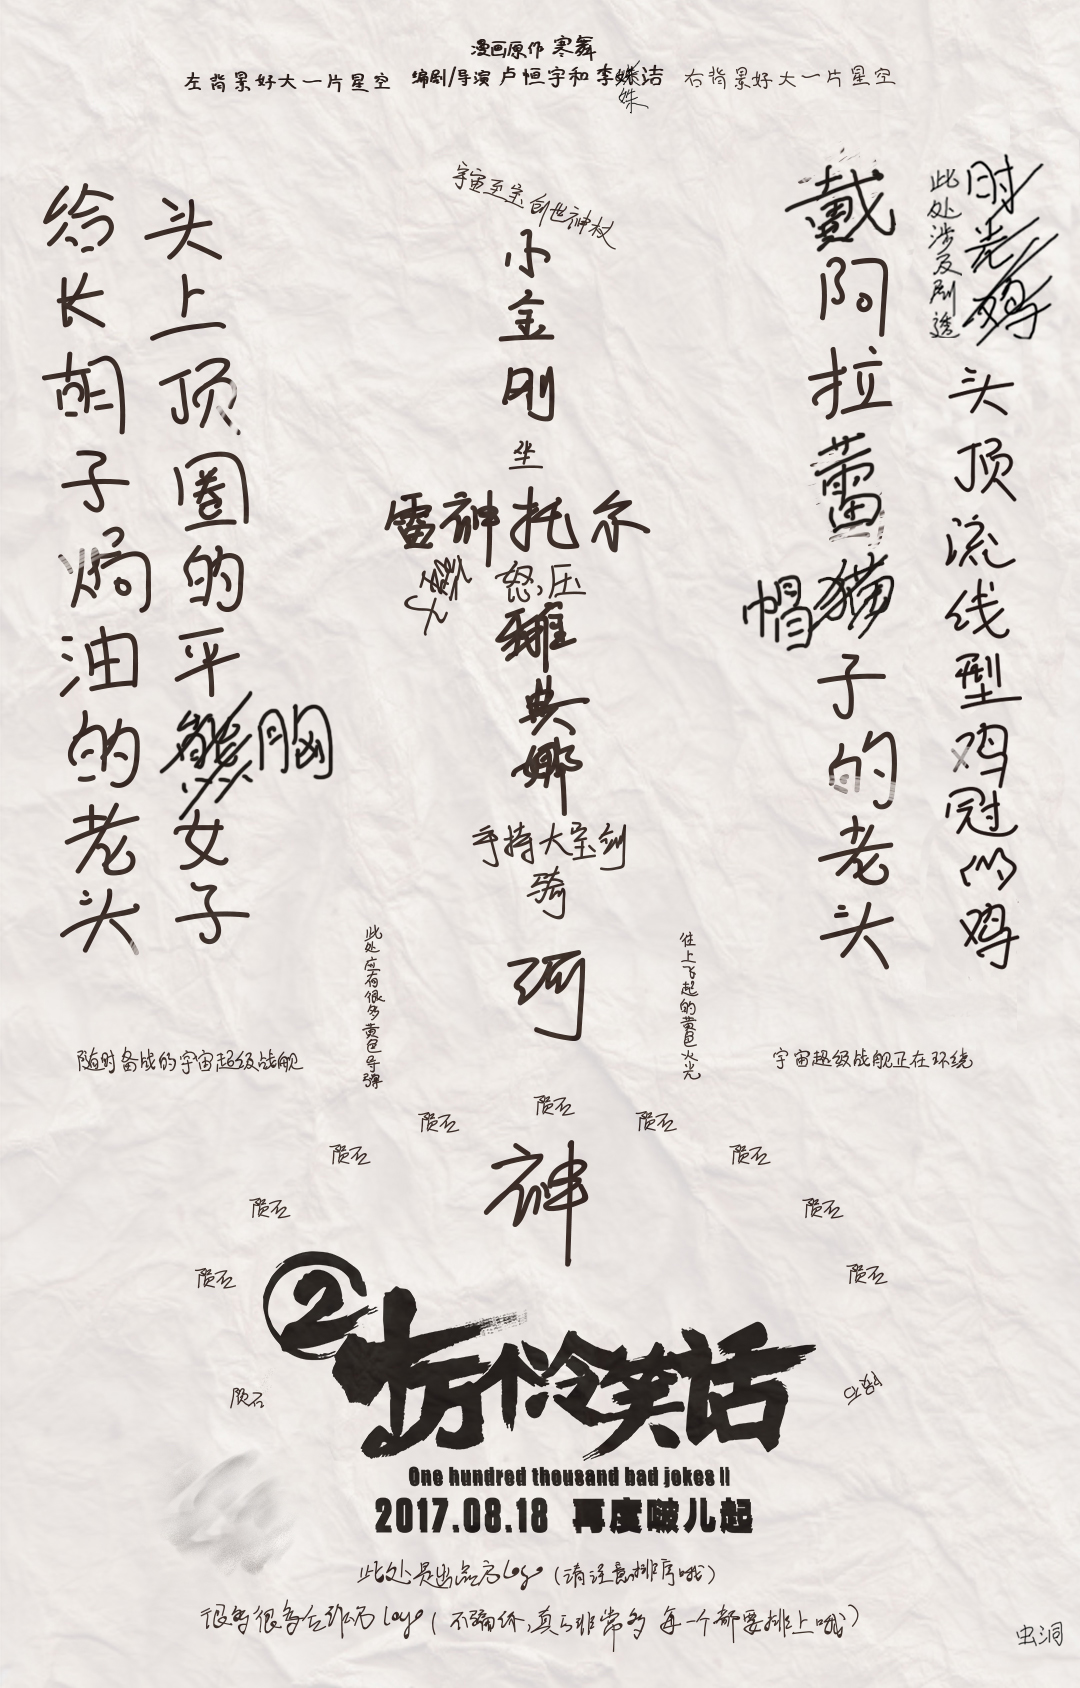 漫画原作 寒舞
左背景好大一片星空 编剧/导演 卢恒宇和李姝洁 右背景好大一片星空
宇宙至宝创世神杖
给长胡子焗油的老头
头上顶圈的平胸女子
小金刚
坐
雷神托尔
怒压
雅典娜
手持大宝剑
骑
河
神
戴阿拉蕾帽子的老头
此处涉及剧透
时光鸡
头顶流线型鸡冠的鸡
此处应有很多黄色导弹
往上飞起的黄色火光
随时备战的宇宙超级战舰
宇宙超级战舰正在环绕
陨石
陨石
陨石
陨石
陨石
陨石
陨石
陨石
陨石
陨石
陨石
②十万个冷笑话
One hundred thousand bad jokes II
2017.08.18 再度啵儿起
此处是出品方logo(请注意排序哦)
很多很多合作方logo(不骗你,真的非常多 每一个都要排上哦)
虫洞